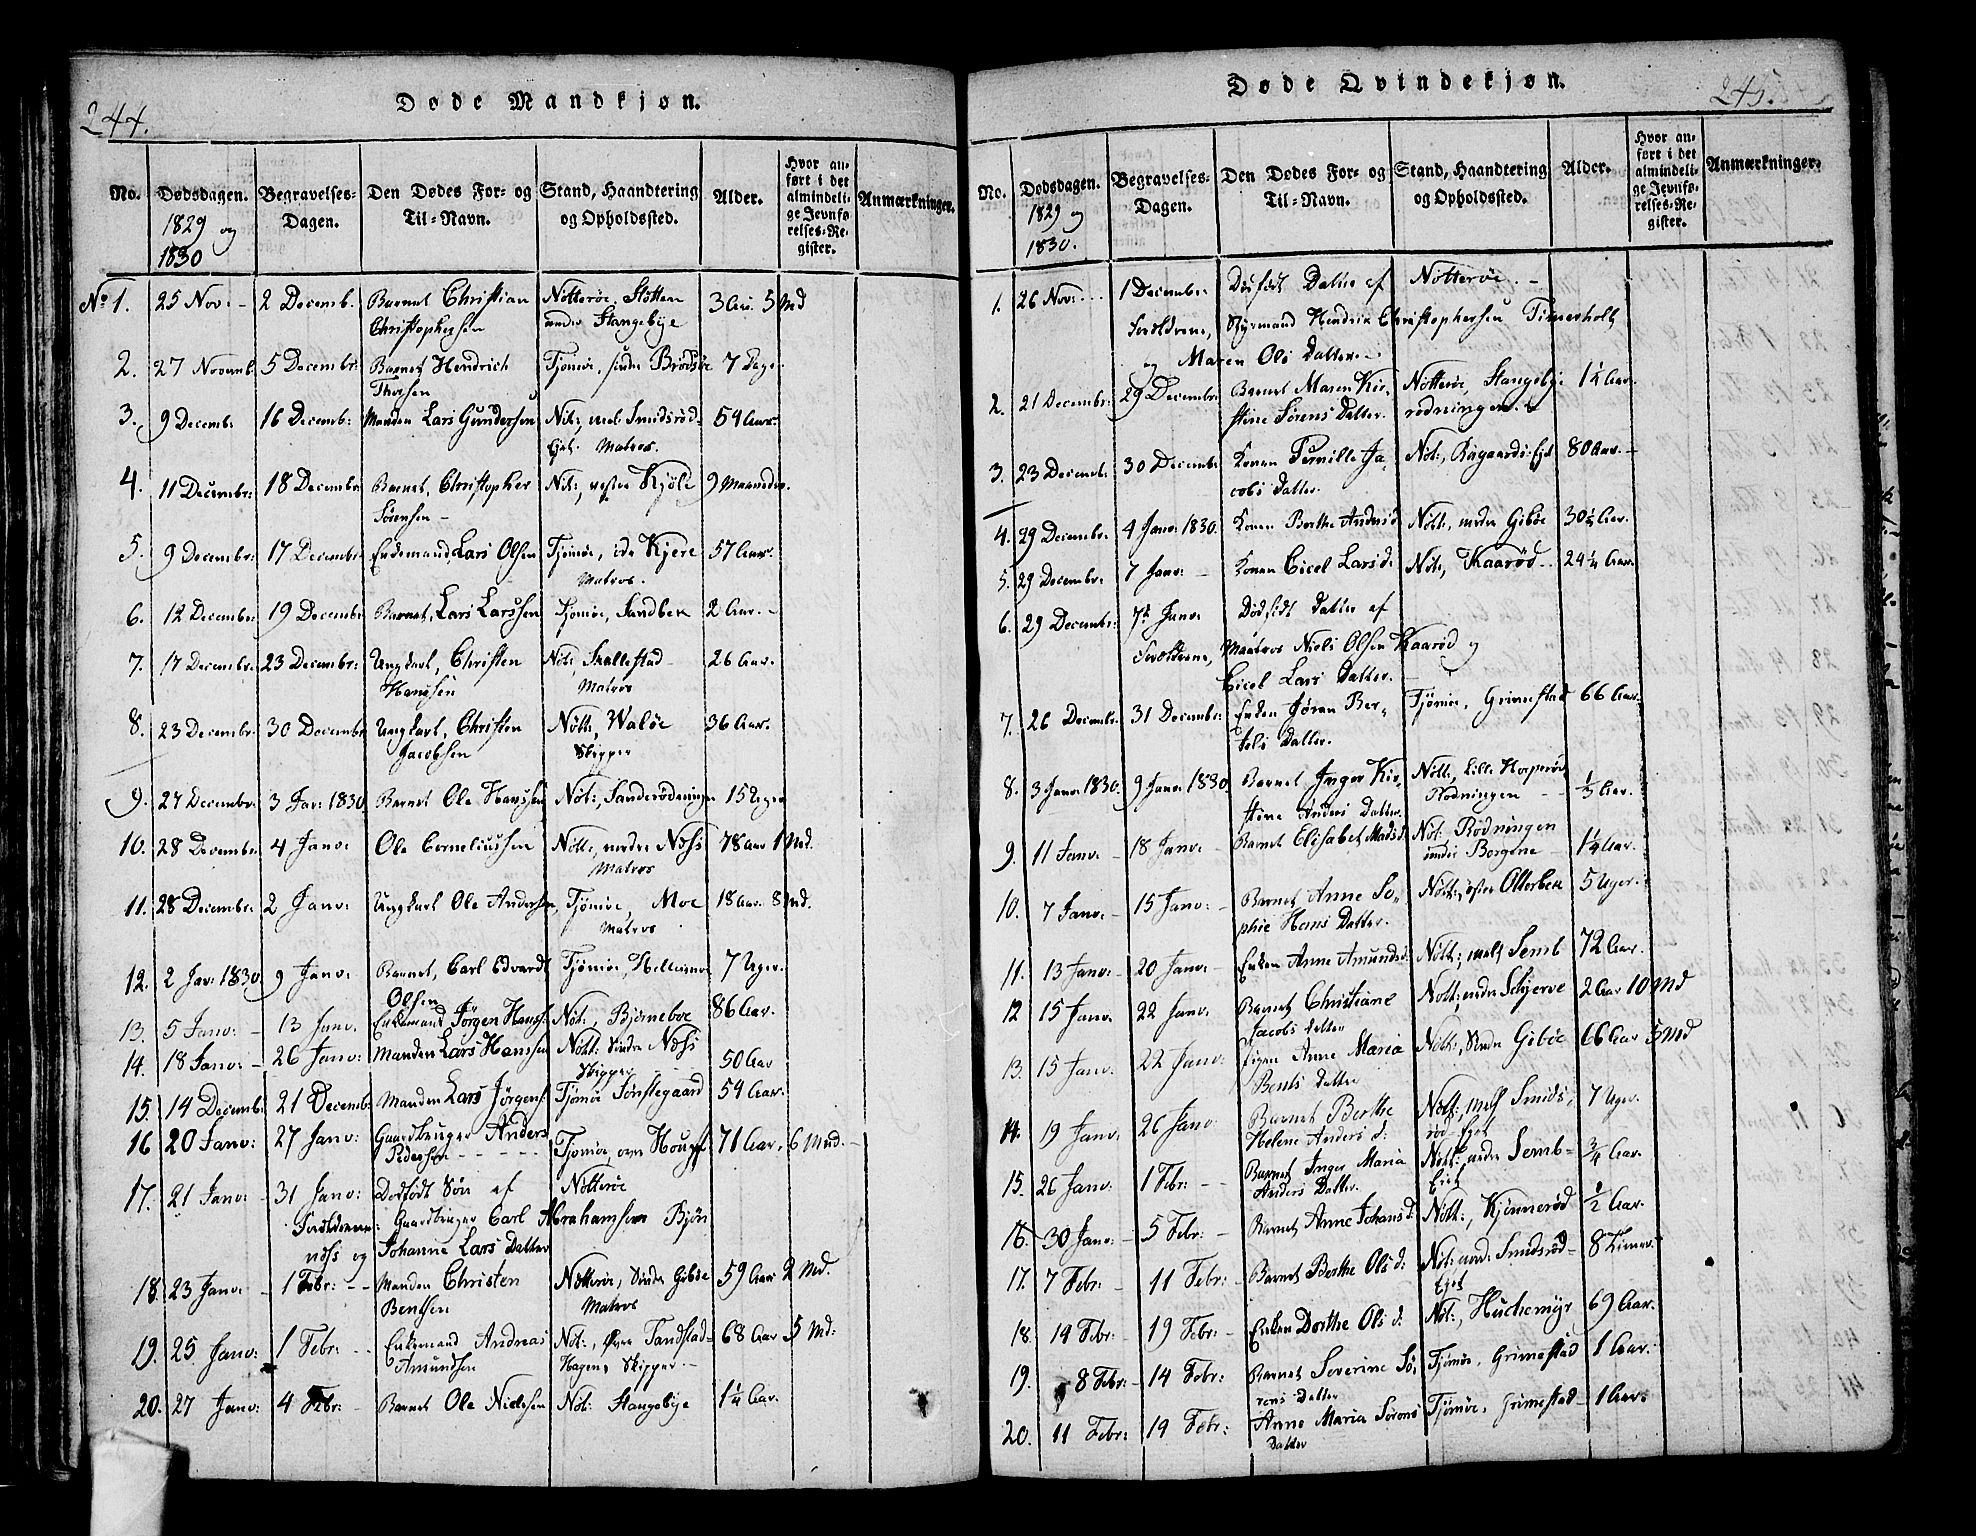 244.
Døde Mandkjøn.
No.
Dødsdagen. 1829 og 1830
Begravelses-Dagen.
Den Dødes For- og Til-Navn.
Stand, Haandtering og Opholdssted.
Alder.
Hvor anført i det almindelige Jevnførelses-Register.
Anmærkninger.
No 1. 25 Nov: - 2 Decemb. Barnet Christian Nötteröe, Slotten 3 Aar. 5 Md
Christophersen under Stangebÿe
2. 27 Novemb. 5 Decembr: Barnet Hendrich Tjömöe, Brödsöe 7 Dage.
Thorsen
3. 9 Decemb: 16 Decemb: Manden Lars Gundersen Nöt:, mel: Smidsröd 54 Aar.
Ejet. Matros.
4. 11 Decembr: 18 Decembr: Barnet, Christopher Nöt:, vestre Kjöle 9 Maaneder.
Sörensen -
5. 9 Decembr: 17 Decembr: Enkemand, Lars Olsen Tjömöe, Kjære 57 Aar.
Matros.
6. 12 Decembr: 19 Decembr: Barnet, Lars Larssen Tjömöe, Sandbek 2 Aar. -
7. 17 Decembr: 23 Decembr: Ungkarl, Christen Nöt: Skallestad 26 Aar.
Hanssen Matros
8. 23 Decembr: 30 Decembr: Ungkarl, Christen Nött:, Walöe 36 Aar.
Jacobsen Skipper
9. 27 Decembr: 3 Jan: 1830 Barnet Ole Hanssen Nöt:, Sanderödningen 15 Uger
10. 28 Decembr: 4 Janv: Ole Corneliussen Nött:, nordre Næss 78 Aar 1 Md.
Matros
11. 28 Decembr: 2 Janv: Ungkarl Ole Andersen, Tjömöe, Moe 18 Aar. 8 Md.
Matros
12. 2 Jan: 1830 9 Janv: Barnet, Carl Edvardt Tjömöe, 7 Uger.
Olsen
13. 5 Janv: - 13 Janv. Enkemand Jörgen Hanss. Nöt:, Björneboe 86 Aar.
14. 18 Janv: - 26 Janv: Manden Lars Hanssen Nött: Söndre Næss 50 Aar
Skipper
15. 14 Decemb: 21 Decemb: Manden Lars Jörgens. Tjömöe Sönstegaard 54 Aar.
16 20 Janv: 27 Janv: Gaardbruger Anders Tjömöe, 71 Aar. 6 Md.
Pedersen - - - - -
17. 21 Janv: - 31 Janv: Dödfödt Sön af Nötteröe
Forældrene: Gaardbruger Carl Abrahamsen Björnnæss og Johanne Lars Datter
18. 23 Janv: - 1 Febr: - - Manden Christen Nötteröe, Söndre Giböe 59 Aar 2 Md.
Bentsen Matros
19. 25 Janv: 1 Febr: - - Enkemand Andreas Nöt:, Øvre Tandstad- 68 Aar 5 Md:
Amundsen Hagen, Skipper - -
20. 27 Janv: 4 Febr: - Barnet Ole Nielsen Nöt: Stangebÿe 1¼ Aar.
245.
Døde Qvindekjøn.
No.
Dødsdagen. 1829 og 1830.
Begravelses-Dagen.
Den Dødes For- og Til-Navn.
Stand, Haandtering og Opholdssted.
Alder.
Hvor anført i det almindelige Jevnførelses-Register.
Anmærkninger.
1. 26 Nov: . . . 1 Decembr: Dödfödt Datter af Nötteröe. -
Forældrene, Styrmand Hendrik Christophersen Timerholt
og Maren Ols Datter. -
2. 21 Decembr: 29 Decembr: Barnet Maren Kirstine Sörens Datter. Nötteröe, Stangebÿe rödningen. 1¼ Aar.
3. 23 Decemb: 30 Decembr: Konen Pernille Jacobs Datter. Nöt:, 80 Aar. -
4. 29 Decembr: 4 Janv: 1830. Konen Berthe Andersd Nött:, nedre Giböe 30½ Aar.
5. 29 Decembr: 7 Janv: - Konen Cicel Lars d: Nöt:, Kaaröd - 24¼ Aar.
6. 29 Decembr: 7de Janv: Dödfödt Datter af
Forældrene, Matros Niels Olsen Kaaröd og
Cicel Lars Datter. -
7. 26 Decembr: 31 Decembr: Enken Jöran Bertels Datter. Tjömöe, Grimestad 66 Aar.
8. 3 Janv: 1830. 9 Janv: 1830 Barnet Inger Kirstine Anders Datter. Nött:, Lille Rödningen - - ⅓ Aar.
9. 11 Janv: - 18 Janv: - Barnet Elisabet Mads d: Nöt: Rödningen under Borgene - 1¼ Aar.
10. 7 Janv: - 15 Janv: - Barnet Anne Sophie Hans Datter. Nött:, østre Ollerbek 5 Uger. -
11. 13 Janv: - 20 Janv: - Enken Anne Amunds d. Nött:, mell Semb 72 Aar.
12 15 Janv. 22 Janv. Barnet Christiane Jacobs Datter Nött:, nedre Schjerve 2 Aar 10 Md
13. 15 Janv: 22 Janv: Pigen Anne Maria Bents Datter Nött:, Söndre Giböe 66 Aar 5 Md
14. 19 Janv: 26 Janv Barnet Berthe Helene Anders d: Nött:, mell Smidsröd Ejet 7 Uger.
15. 26 Janv: 1 Febr: - - Barnet Inger Maria Anders Datter. Nöt: nedre Semb- Ejet ¾ Aar.
16. 30 Janv: - 5 Febr: - Barnet Anne Johans d. Nött:, Kjönneröd ½ Aar.
17. 7 Febr: - 11 Febr: - Barnet Berthe Ols d: Nöt: ned: Smidsröd- Ejet 8 Timer.
18. 14 Febr: 19 Febr: - Enken Dorthe Ols d: Nöt:, Huchemÿr 69 Aar.
19. 8 Febr: - 14 Febr: Barnet Severine Sörens Datter Tjömöe, Grimestad 1 Aar.
20. 11 Febr: 19 Febr: Anne Maria Sörens Datter Tjömöe, Grimestad - 1 Aar.